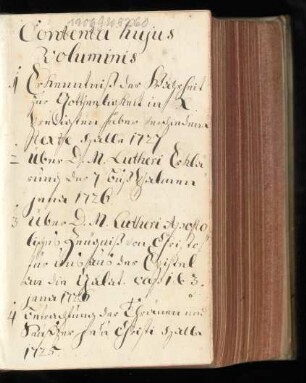 1906995060
Contenta hujus
Voluminis
1 Erkenntniß der Wahrheit
zur Gottseeligkeit in X
Predigten über verschiedene
Texte Halle 1727
2 Über D. M. Lutheri Erklä
rung der 7 Buß Psalmen
Jena 1726
3 Über D. M. Lutheri Aposto
lisches Zeugniß von Christo
für uns aus der Epistel
an die Galat. cap 1 6 3.
Jena 1726
4 Betrachtung der Thränen und
Seufzer Jesu Christi Halle
1725